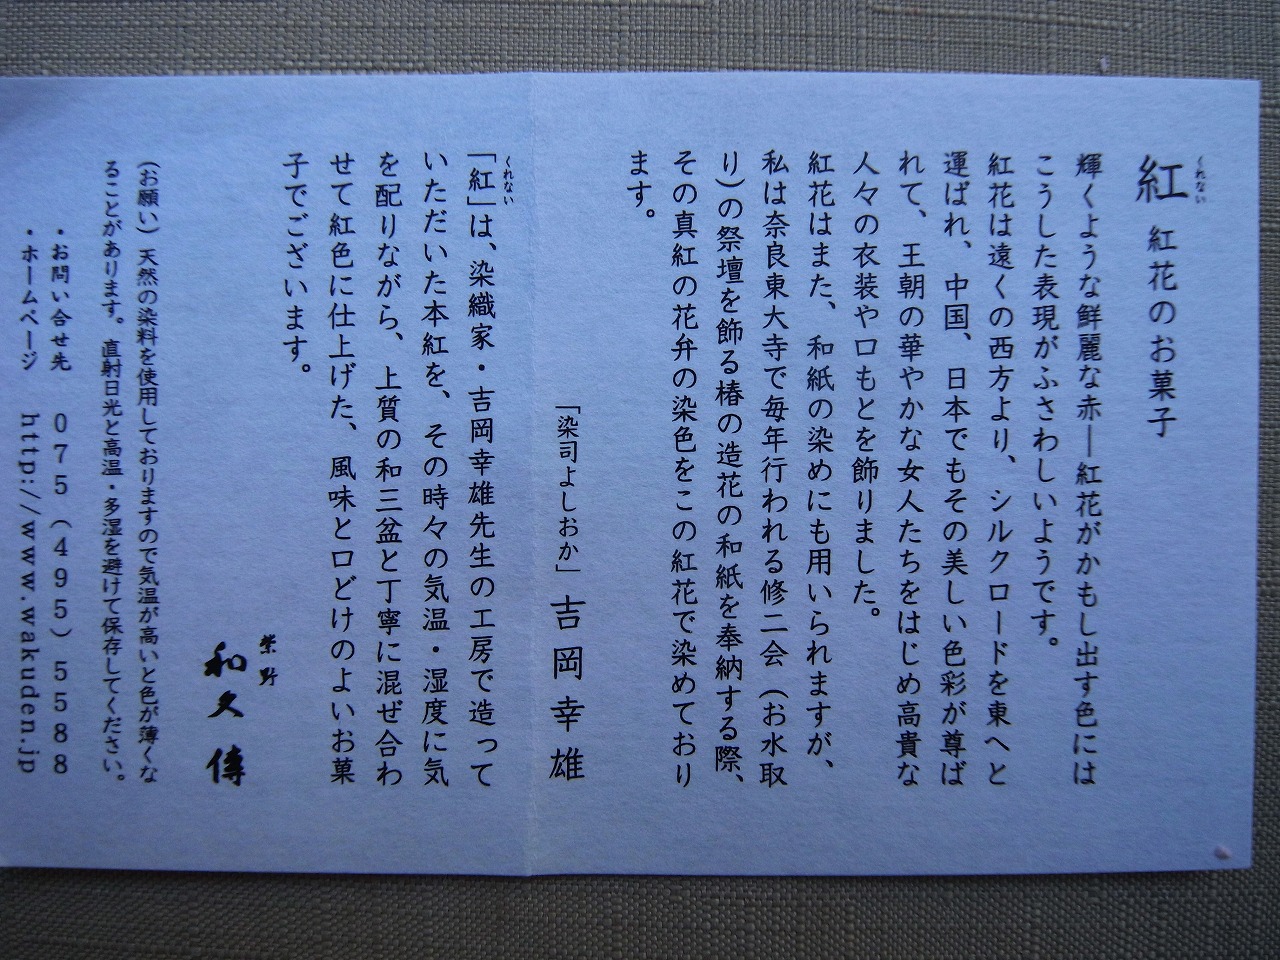 紅 紅花のお菓子
くれない
輝くような鮮麗な赤―紅花がかもし出す色には
こうした表現がふさわしいようです。
紅花は遠くの西方より、シルクロードを東へと
運ばれ、中国、日本でもその美しい色彩が尊ば
れて、王朝の華やかな女人たちをはじめ高貴な
人々の衣装や口もとを飾りました。
紅花はまた、和紙の染めにも用いられますが、
私は奈良東大寺で毎年行われる修二会（お水取
り）の祭壇を飾る椿の造花の和紙を奉納する際、
その真紅の花弁の染色をこの紅花で染めており
ます。
「染司よしおか」吉岡幸雄
くれない
「紅」は、染織家・吉岡幸雄先生の工房で造って
いただいた本紅を、その時々の気温・湿度に気
を配りながら、上質の和三盆と丁寧に混ぜ合わ
せて紅色に仕上げた、風味と口どけのよいお菓
子でございます。
紫野
和久傳
（お願い）天然の染料を使用しておりますので気温が高いと色が薄くな
ることがあります。直射日光と高温・多湿を避けて保存してください。
・お問い合せ先 075（495）5588
・ホームページ http://www.wakuden.jp